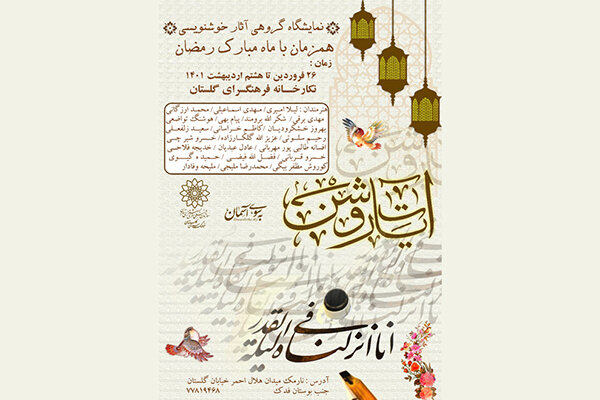 نمایشگاه گروهی آثار خوشنویسی
همزمان با ماه مبارک رمضان
زمان :
۲۶ فروردین تا هشتم اردیبهشت ۱۴۰۱
نگارخانه فرهنگسرای گلستان
هنرمندان : لیلا امیری/ مهدی اسماعیلی/ محمد اوزگانی
مهدی برقی/ شکر الله برومند/ پیام بهی/ هوشنگ تواضعی
بهروز خشکرودیان/ کاظم خراسانی/ سعید زلفعلی
رحیم سلونی/ عزیز الله گلکارزاده/ خسرو شیر چی
افسانه طالبی پور مهربانی/ عادل عبدیان/ خدیجه فلاحی
خسرو قربانی/ فضل الله فیضی/ حمید ه گیوی
کوروش مظفر بیگی/ محمدرضا ملیجی/ ملیحه وفادار
آیات روشن
بسوی آسمان
انا انزلناه فی لیلة القدر
آدرس : نارمک میدان هلال احمر خیابان گلستان
جنب بوستان فدک
۷۷۸۱۹۴۶۸